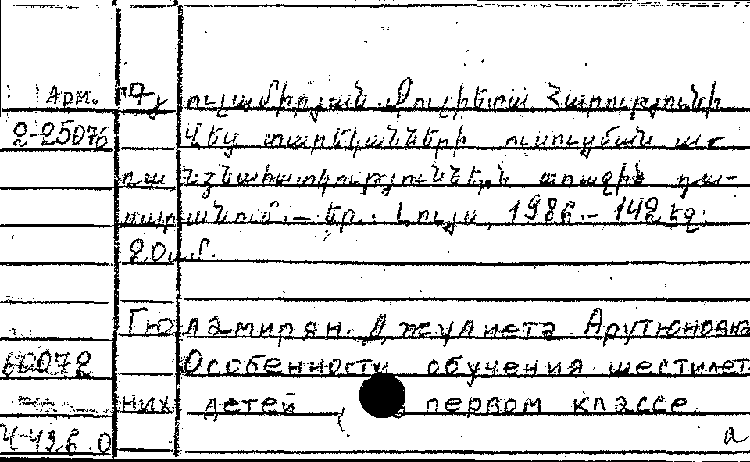 Арм. Գյուլամիրյան Ջուլիետա Հարությունի
2-25076 Վեց տարեկանների ուսուցման ա-
ռանձնահատկություններն առաջին դա-
սարանում. — Եր.: Լույս, 1986. — 142 էջ:
20 սմ.
Гюламирян Джулиета Арутюновна
Особенности обучения шестилет-
них детей в первом классе
а